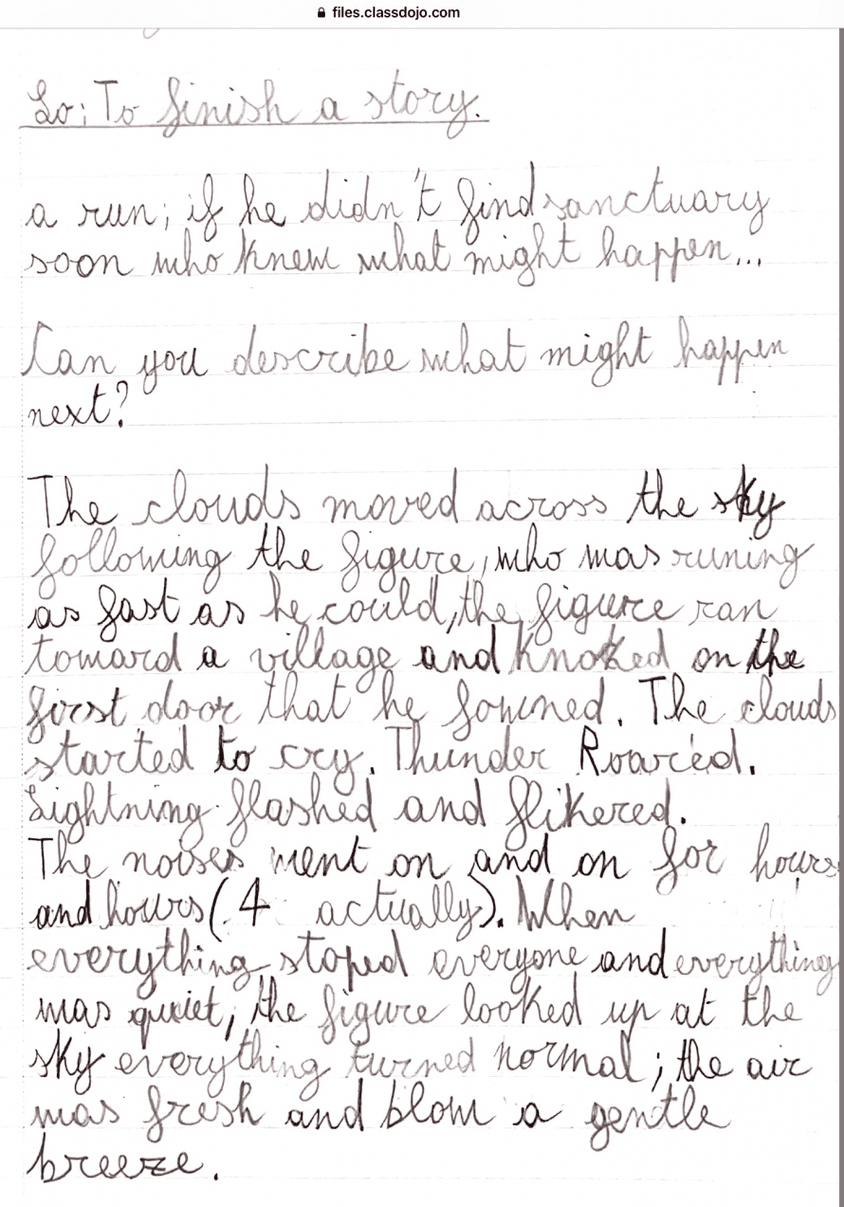 files.classdojo.com
Lo: To finish a story.
a run; if he didn't find sanctuary
soon who knew what might happen...
Can you describe what might happen
next?
The clouds moved across the sky
following the figure, who was runing
as fast as he could, the figure ran
toward a village and knoked on the
first door that he founed. The clouds
started to cry. Thunder Roared.
Lightning flashed and flikered.
The noises went on and on for hours
and hours (4 actually). When
everything stoped everyone and everything
was quiet, the figure looked up at the
sky everything turned normal; the air
was fresh and blow a gentle
breeze.